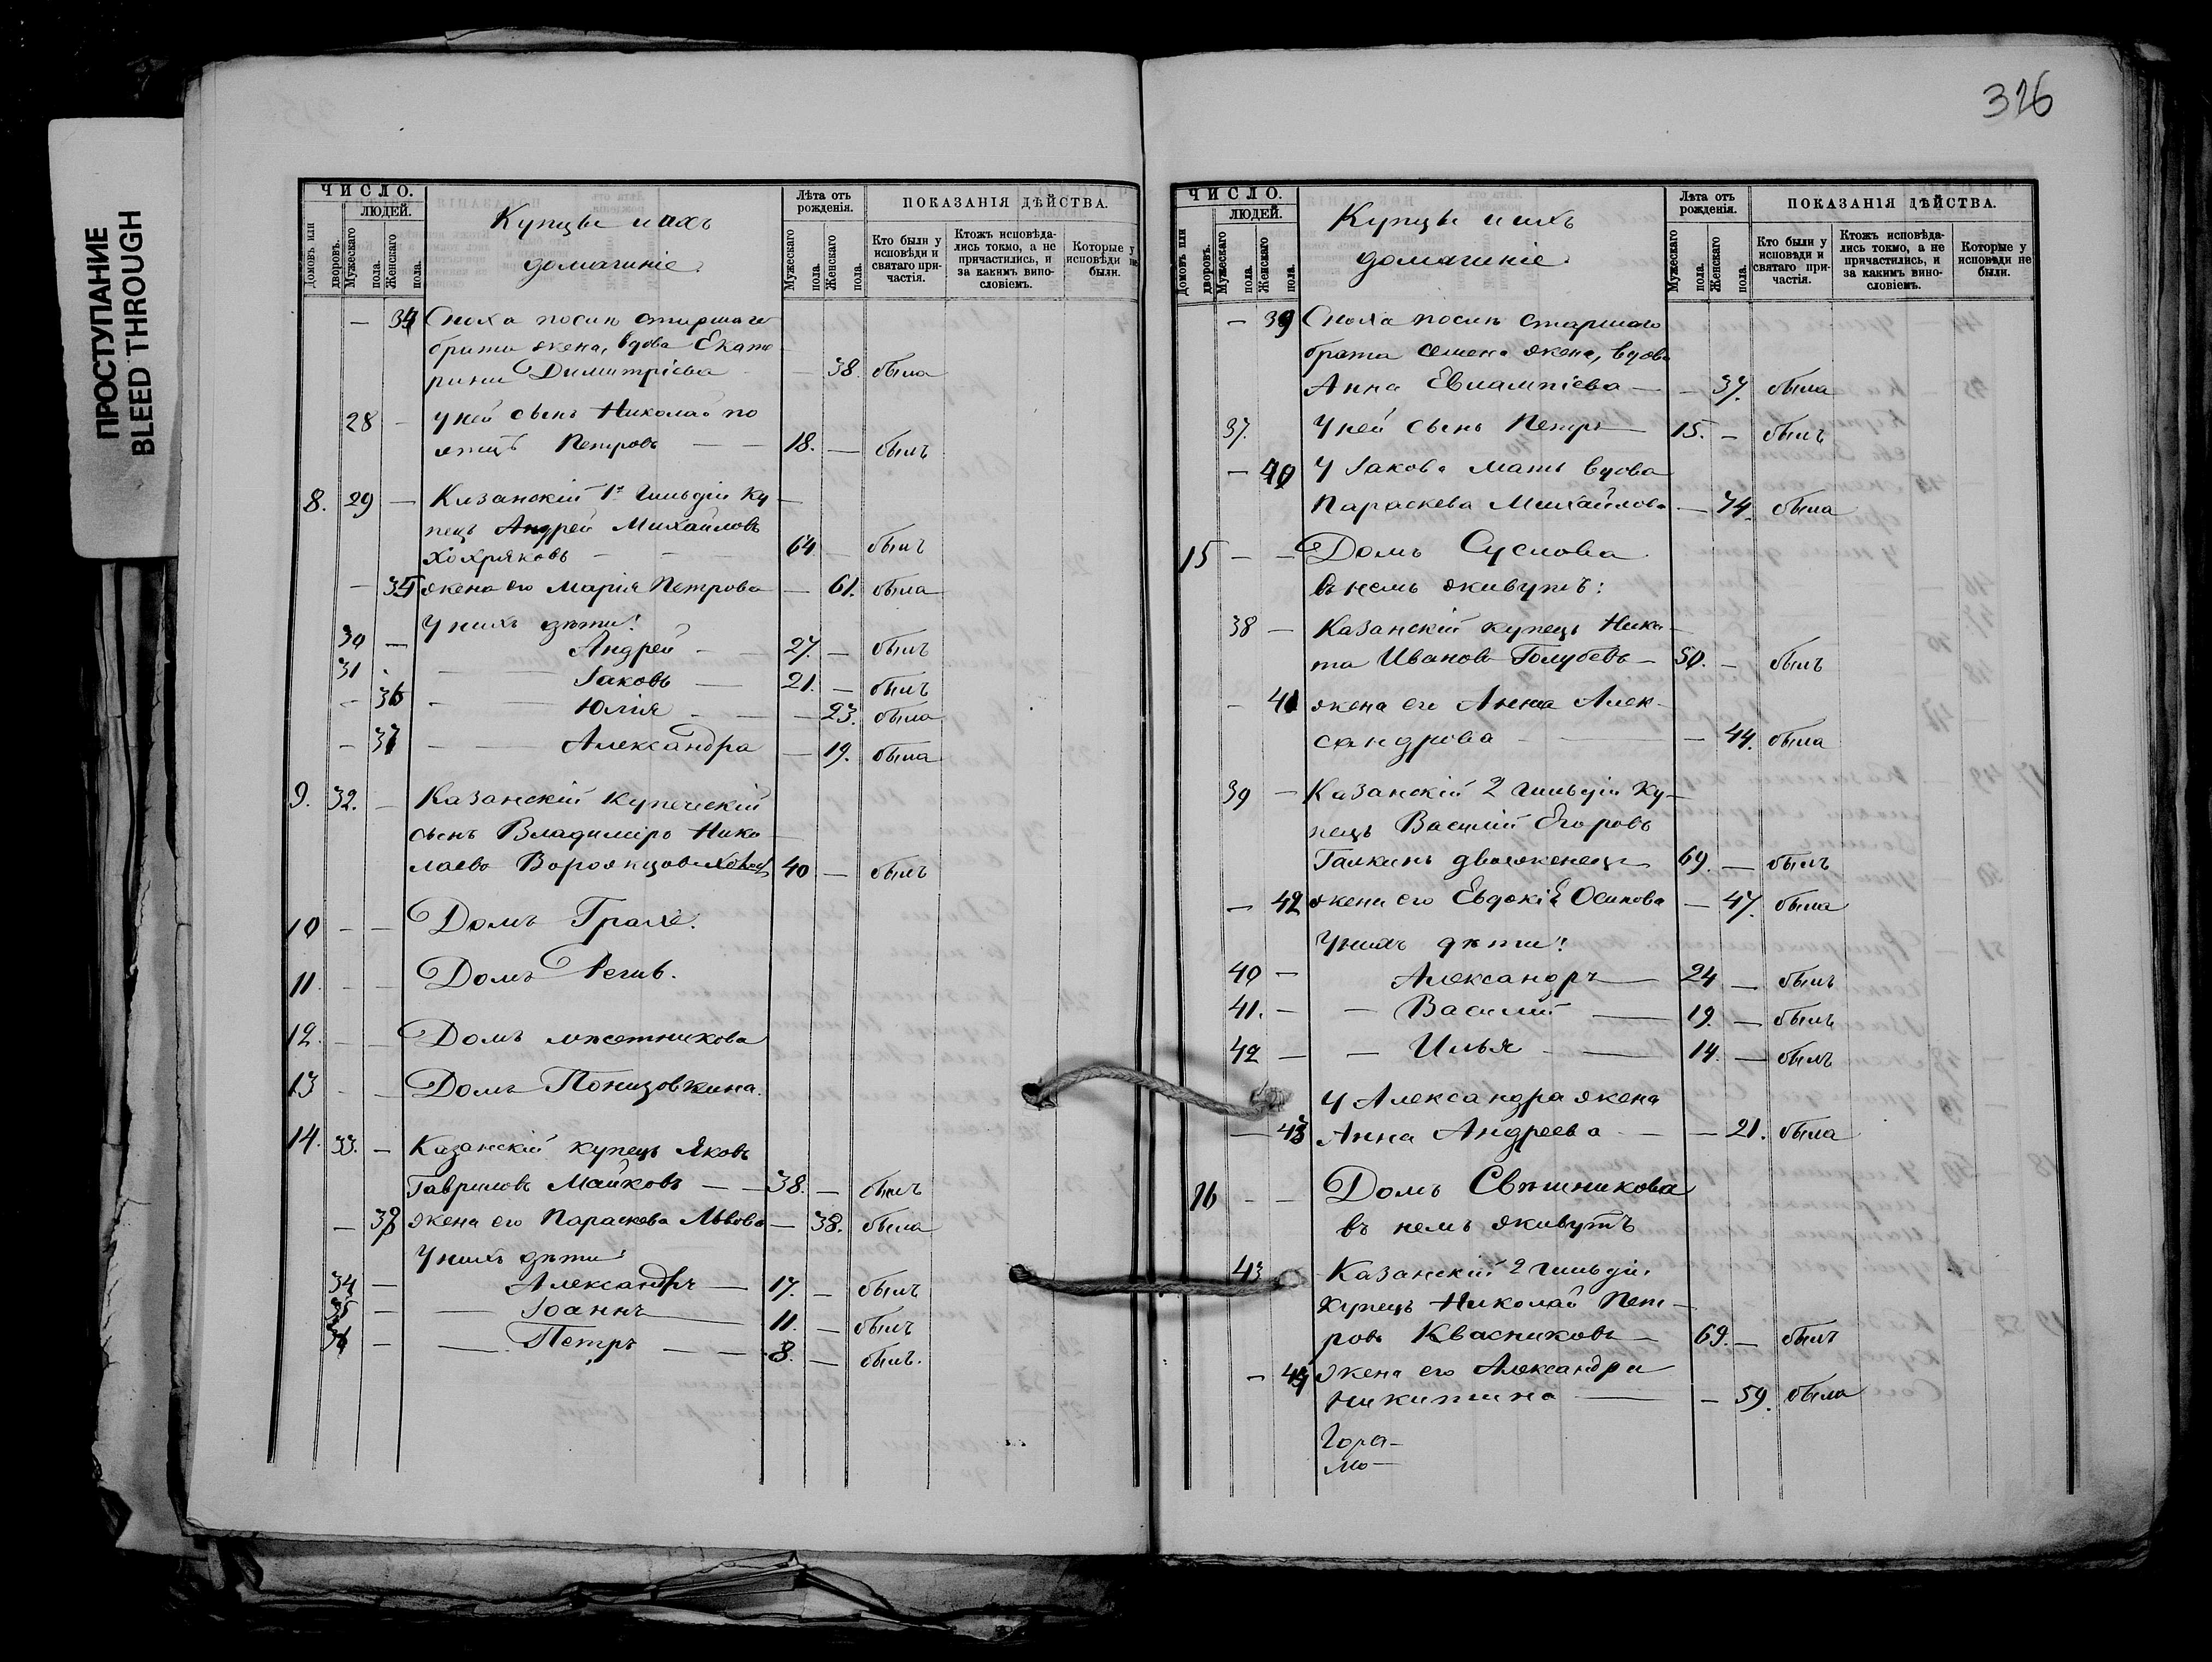 ПРОСТУПАНИЕ
BLEED THROUGH
326
ЧИСЛО.
ЛЮДЕЙ.
Домовъ или дворовъ.
Мужескаго пола.
Женскаго пола.
Купцы и ихъ
домашніе.
Лѣта отъ рожденія.
Мужескаго пола.
Женскаго пола.
ПОКАЗАНІЯ ДѢЙСТВА.
Кто были у исповѣди и святаго причастія.
Ктожъ исповѣдались токмо, а не причастились, и за какимъ винословіемъ.
Которые у исповѣди не были.
— 34 Сноха посин старшаго
брата жена, вдова Екате
рина Димитріева — 38. была
28 — У ней сынъ Николай по
отцѣ Петровъ — — 18. — былъ
8. 29 — Казанскій 1й гильдіи ку—
пецъ Андрей Михайловъ
Хохряковъ — — 64 — былъ
— 35 жена его Марія Петрова — 61. была
У нихъ дѣти:
30 — Андрей — 27. — былъ
31 — Іаковъ — 21. — былъ
— 36 — Юлія — — 23. была
— 37 — Александра — 19. была
9. 32. — Казанскій купеческій
сынъ Владиміръ Нико—
лаевъ 40 — былъ
10 — — Домъ Грахе.
11. — — Домъ
12. — — Домъ
13 — — Домъ Понизовкина.
14. 33. — Казанскій купецъ Яковъ
Гавриловъ Майковъ — — 38. — былъ
— 38 жена его Параскева Львова — 38. была
У нихъ дѣти:
34 — Александръ — 17. — былъ
35 — — Іоаннъ — 11. — былъ
36 — — Петръ — — 8. — былъ.
ЧИСЛО.
ЛЮДЕЙ.
Домовъ или дворовъ.
Мужескаго пола.
Женскаго пола.
Купцы и ихъ
домашніе.
Лѣта отъ рожденія.
Мужескаго пола.
Женскаго пола.
ПОКАЗАНІЯ ДѢЙСТВА.
Кто были у исповѣди и святаго причастія.
Ктожъ исповѣдались токмо, а не причастились, и за какимъ винословіемъ.
Которые у исповѣди не были.
— 39 Сноха посин старшаго
брата Семена жена, вдова
Анна Евлампіева — — 37. была
37. У ней сынъ Петръ — 15. — былъ
— 40 У Іакова мать вдова
Параскева Михайлова — 74. была
15 — — Домъ Суслова
въ немъ живутъ:
38 — Казанскій купецъ Ники—
та Ивановъ Голубевъ — 50. — былъ
— 41 жена его Анна Алек—
сандрова — — 44. была
39 — Казанскій 2 гильдіи ку—
пецъ Василій Егоровъ
Галкинъ двоеженецъ 69. — былъ
— 42 жена его Евдокія Осипова — 47. была
У нихъ дѣти:
40 — Александръ — 24 — былъ
41. — — Василій — 19. — былъ
42 — — Илья — 14. — былъ
У Александра жена
— 43 Анна Андреева — — 21. была
16 — — Домъ Свѣшникова
въ немъ живутъ
43 Казанскій 2 гильдіи
купецъ Николай Пет—
ровъ Квасниковъ — 69. — былъ
— 44 жена его Александра
Никитина — — 59. была